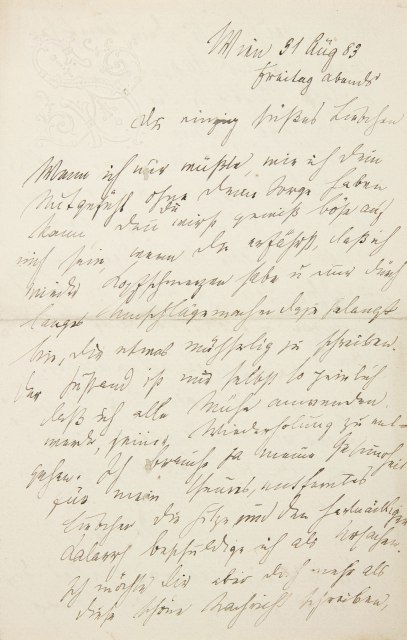 Wien 31 Aug 83
Freitag abends
Du einzig süßes Liebchen
Wenn ich nur wüßte, wie ich dein
Mitgefühl ohne deine Sorge haben
kann. Du wirst gewiß böse auf
mich sein, wenn du erfährst, daß ich
wieder Kopfschmerzen habe u nur durch
langes Umschlägemachen dazu gelangt
bin, dir etwas mühselig zu schreiben.
Der Zustand ist mir selbst so peinlich
daß ich alle Mühe anwenden
werde, seiner Wiederholung zu ent-
gehen. Ich brauche ja meine Gesundheit
für mein theures, entferntes
Liebchen die Hitze und den hartnäckigen
Katarrh beschuldige ich als Ursachen.
Ich möchte dir aber doch mehr als
diese schöne Nachricht schreiben,